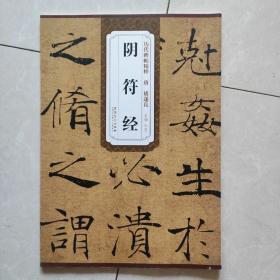 阴符经
历代碑帖精粹 唐 褚遂良
尅姦生於
必潰
之脩之謂